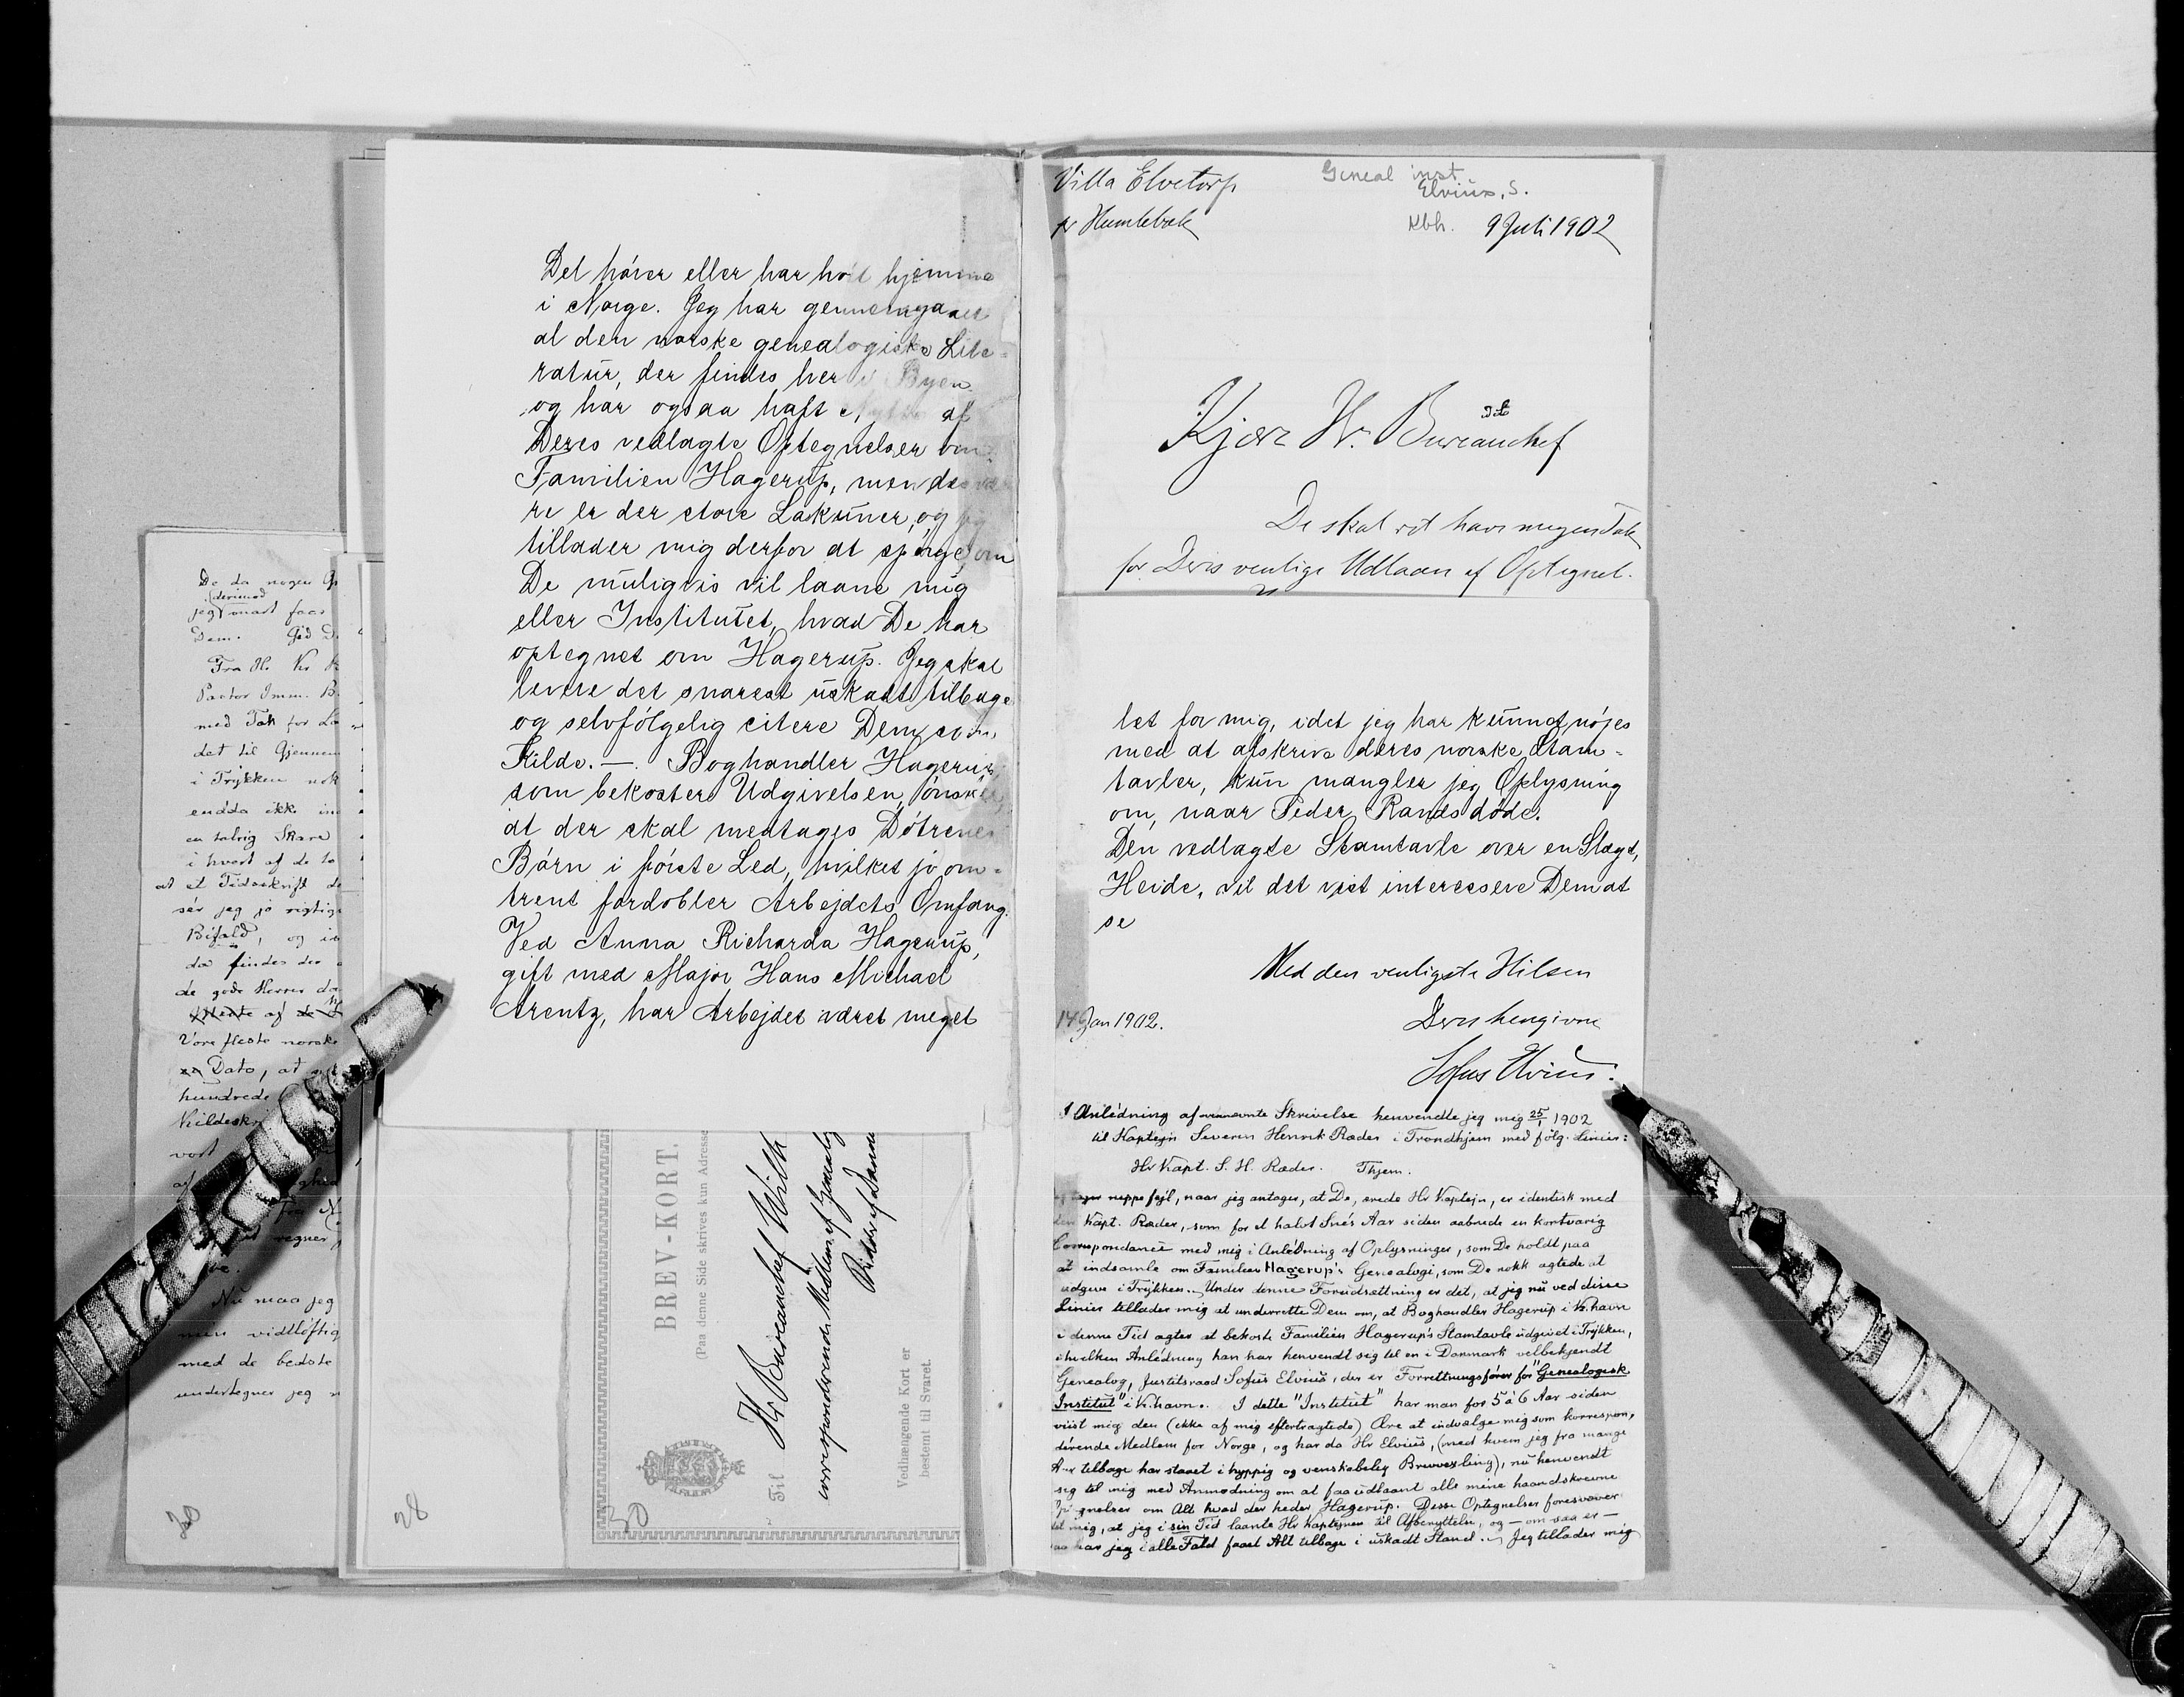 De da nogen
(derimod
jeg snart faar
Dem. Gid
Fra Hr. Kr
Pastor Imm. B.
med Tak for
det til Gjennem
i Trykken nok
endda ikke
en talrig Skare
i hvert af de to
at et Tidsskrift
ser jeg jo rigtig
Bifald, og
da findes der
de gode Herrer
af de
Vore fleste norske
Dato, at
hundrede
Kildeskr
vort
af
Fra
regner
Nu maa jeg
men vidtløftig
med de bedste
undertegner jeg
28
Det hører eller har hørt hjemme
i Norge. Jeg har gennemgaaet
al den norske genealogiske Lite-
ratur, der findes her i Byen
og har ogsaa haft Nytte af
Deres vedlagte Optegnelser om
Familien Hagerup, men desvæ
re er der store Lakuner, og jeg
tillader mig derfor at spørge, om
De muligvis vil laane mig
eller Institutet, hvad De har
optegnet om Hagerup. Jeg skal
levere det snarest uskadt tilbage
og selvfølgelig citere Dem som
Kilde. —. Boghandler Hagerup,
som bekoster Udgivelsen, ønsker,
at der skal medtages Døtrenes
Børn i første Led, hvilket jo om-
trent fordobler Arbejdets Omfang.
Ved Anna Richarda Hagerup,
gift med Major Hans Michael
Arentz, har Arbejdet været meget
BREV-KORT.
(Paa denne Side skrives kun Adresse
Til Hr. Bureauchef With
correspondrende Medlem af Genealog
Ridder af Danne
Vedhængende Kort er
bestemt til Svaret.
30
Villa Elvetorp
pr Humlebæk
Geneal inst.
Elvius, S.
Kbh. 9 Juli 1902
Kjære Hr. Bureauchef
De skal ret have megen Tak
for Deres venlige Udlaan af Optegnel.
let for mig, idet jeg har kunnet nøjes
med at afskrive deres norske Stam-
tavler, kun mangler jeg Oplysning
om, naar Peder Rands døde.
Den vedlagte Stamtavle over en Slægt,
Heide, vil det vist interessere Dem at
se
Med den venligste Hilsen
Deres hengivne
14 Jan 1902.
Sofus Elvius.
I Anledning af ovennævnte Skrivelse henvendte jeg mig 25/1 1902
til Kaptejn Severin Henrik Ræder i Trondhjem med følg. Linier:
Hr Kapt. S. H. Ræder. Thjem.
Jeg tager neppe fejl, naar jeg antager, at De, ærede Hr Kaptejn, er identisk med
den Kapt. Ræder, som for et halvt Snes Aar siden aabnede en kortvarig
Correspondance med mig i Anledning af Oplysninger, som De holdt paa
at indsamle om Familien Hagerup's Genealogi, som De nokk agtede at
udgive i Trykken. Under denne Forudsættning er det, at jeg nu ved disse
Linier tillader mig at underrette Dem om, at Boghandler Hagerup i K.havn
i denne Tid agter at bekoste Familien Hagerup's Stamtavle udgivet i Trykken,
i hvilken Anledning han har henvendt sig til en i Danmark velbekjendt
Genealog, Justitsraad Sofus Elvius, der er Forrettningsfører for "Genealogisk
Institut" i K.havn. I dette "Institut" har man for 5 à 6 Aar siden
viist mig den (ikke af mig eftertragtede) Ære at indvælge mig som korrespon-
derende Medlem for Norge, og har da Hr Elvius, (med hvem jeg fra mange
Aar tilbage har staaet i hyppig og venskabelig Brevvexling), nu henvendt
sig til mig med Anmodning om at faa udlaant alle mine haandskrevne
Optegnelser om Alt hvad der heder Hagerup. Disse Optegnelser foresvæver
det mig, at jeg i sin Tid laante Hr Kaptejnen til Afbenyttelse, og — om saa er —
saa har jeg i alle Fald faaet Alt tilbage i uskadt Stand. Jeg tillader mig